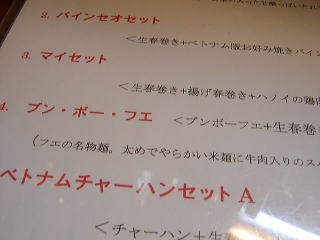 2. バインセオセット
<生春巻き+ベトナム版お好み焼きバイン
3. マイセット
<生春巻き+揚げ春巻き+ハノイの鶏
4. ブン・ボー・フエ <ブンボーフエ+生春巻
(フエの名物麺。太めでやらかい米麺に牛肉入りのス
ベトナムチャーハンセット A
<チャーハン+生